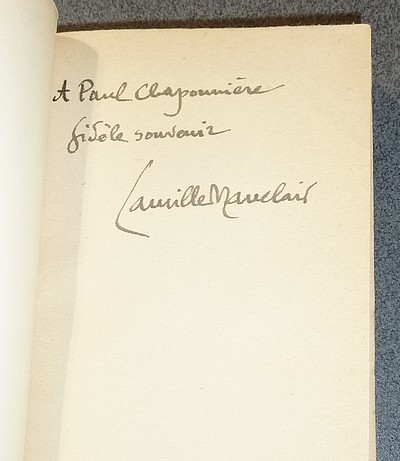 A Paul Chaponnière
fidèle souvenir
Camille Mauclair